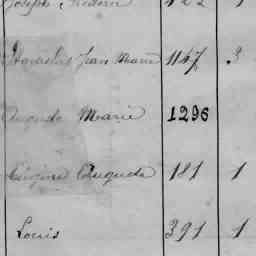 Joseph 422 1
Stanislas Jean Marie 1147 3
Auguste Marie 1296
Eugène Auguste 181 1
Louis 391 1